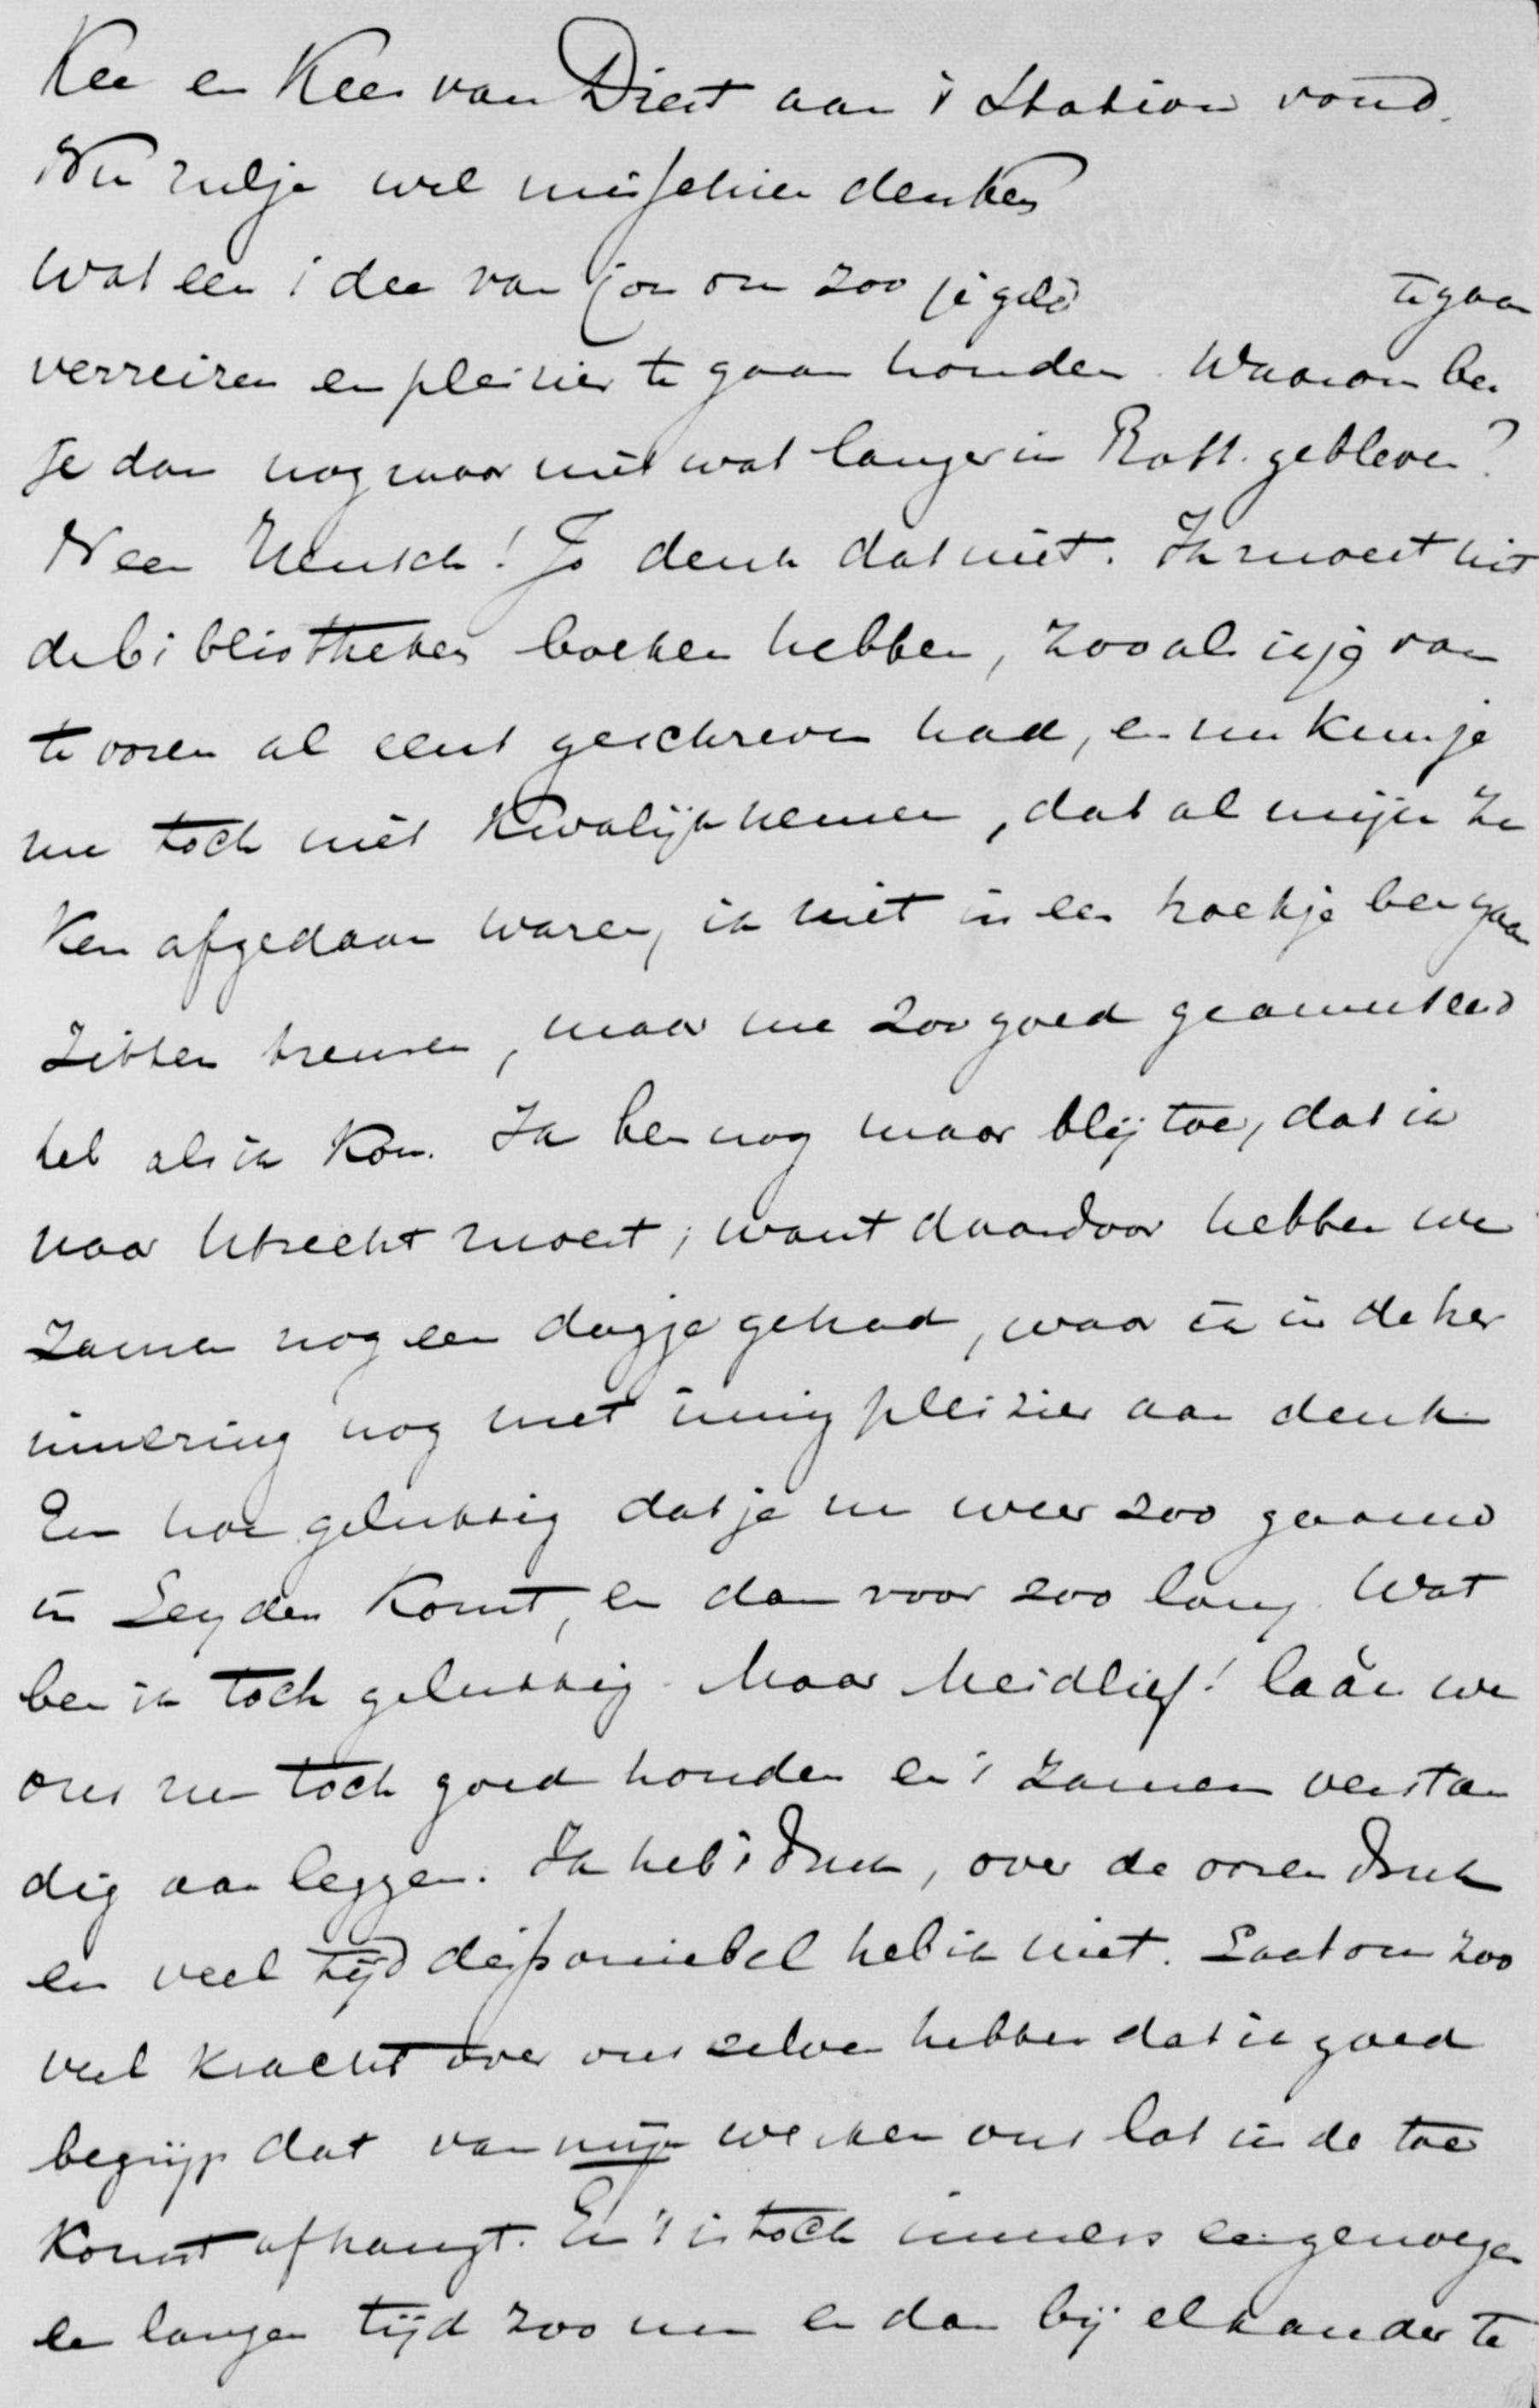 Kee en Kees van Diest aan 't Station vond.
Nu zulje wel misschien denken
Wat een idee van jou om zoo je geld te gaan
verreizen en pleizier te gaan houden. Waarom ben
je dan nog maar niet wat langer in Rott. gebleven?
Neen Mensch! Jo denk dat niet. Ik moest uit
de bibliotheken boeken hebben, zooals ik je van
te voren al eens geschreven had, en nu kun je
me toch niet kwalijk nemen, dat al mijn za
ken afgedaan waren, ik niet in een hoekje ben gaan
zitten treuren, maar me zoo goed geamuseerd
heb als ik kon. Ik ben nog maar blij toe, dat ik
naar Utrecht moest; want daardoor hebben we
zamen nog een dagje gehad, waar ik in de her
innering nog met innig pleizier aan denk
En hoe gelukkig dat je nu weer zoo gaauw
in Leyden komt, en dan voor zoo lang. Wat
ben ik toch gelukkig. Maar Meidlief! laân we
ons nu toch goed houden en 't zamen verstan
dig aan leggen. Ik heb 't druk, over de ooren druk
en veel tijd disponiebel heb ik niet. Laat ons zoo
veel kracht over ons zelven hebben dat ik goed
begrijp dat van mijn werken ons lot in de toe
komst afhangt. En 't is toch immers een genoegen
een langen tijd zoo nu en dan bij elkander te